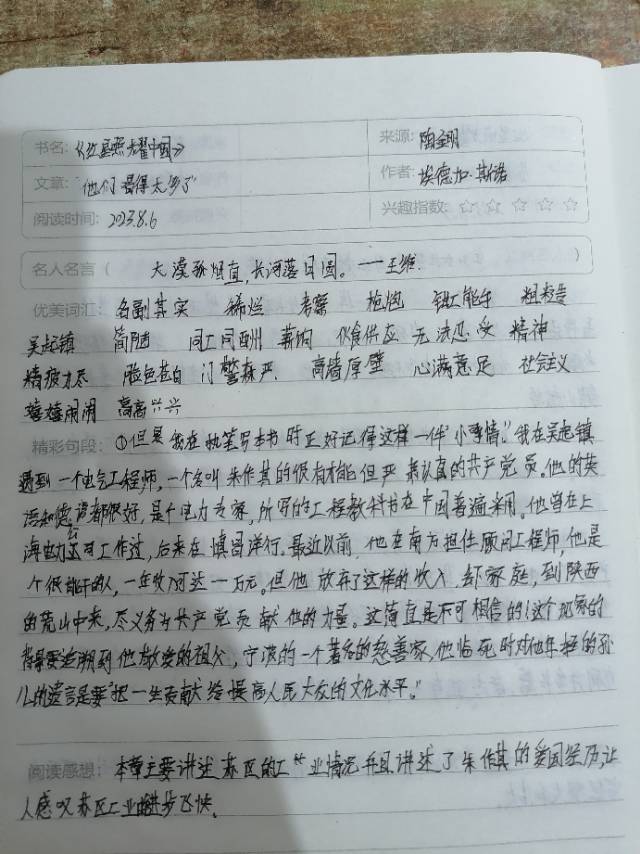 书名:《红星照耀中国》 来源: 陶金明
文章:"他们唱得太多了" 作者: 埃德加·斯诺
阅读时间: 2023.8.6 兴趣指数: ☆ ☆ ☆ ☆ ☆
名人名言( 大漠孤烟直,长河落日圆。——王维. )
优美词汇: 名副其实 稀烂 枪炮 粗制造
吴起镇 简陋 同工同酬 薪饷 伙食供应 无法忍受 精神
精疲力尽 脸色苍白 门警森严. 高墙厚壁 心满意足 社会主义
嘻嘻闹闹 高高兴兴
精彩句段: ①但是我在执笔写本书时正好记得这样一件"小事情"。我在吴起镇
遇到一个电气工程师,一个名叫朱作其的很有才能但严肃认真的共产党员。他的英
语和德语都很好,是个电力专家,所写的工程教科书在中国普遍采用。他曾在上
海电力公司工作过,后来在慎昌洋行.最近以前,他在南方担任顾问工程师,他是
个很能干的人,一年收入可达一万元。但他放弃了这样的收入、丢下家庭,到陕西
的荒山中来,尽义务为共产党贡献他的力量。这简直是不可相信的!这个现象的
背景要追朔到他敬爱的祖父,宁波的一个著名的慈善家,他临死时对他年轻的孙
儿的遗言是要"把一生贡献给提高人民大众的文化水平。"
阅读感想: 本章主要讲述苏区的工业情况并且讲述了朱作其的爱国经历,让
人感叹苏区工业的进步飞快。